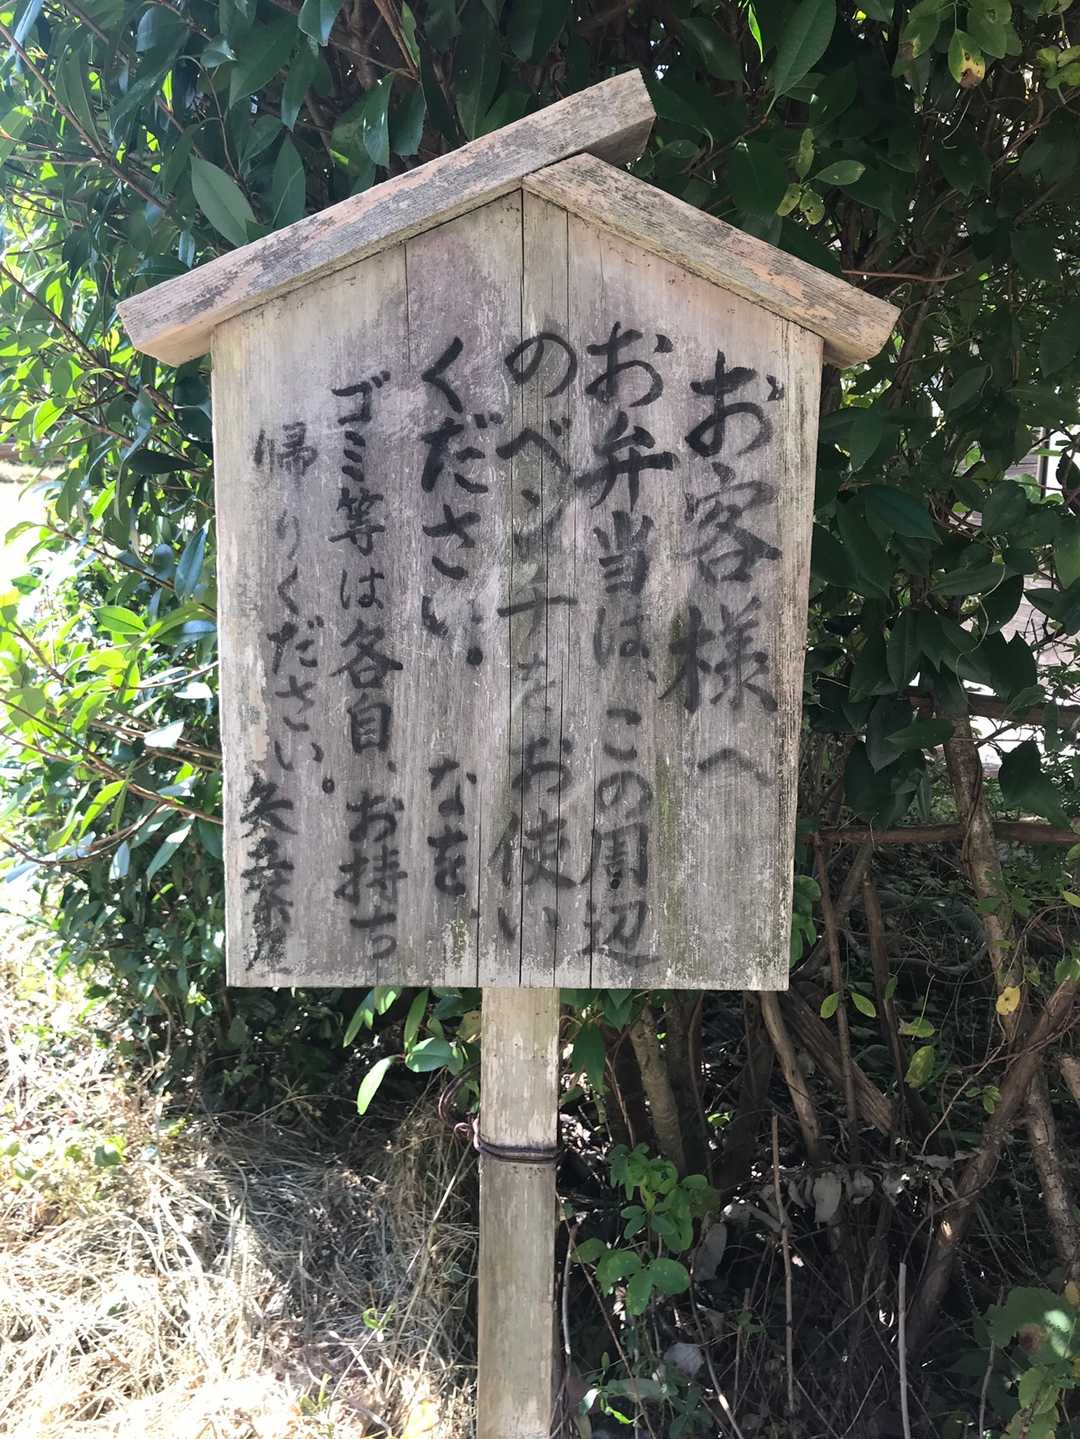 お客様へ
お弁当は、この周辺
のベンチをお使い
ください。 なを、
ゴミ等は各自、お持ち
帰りください。